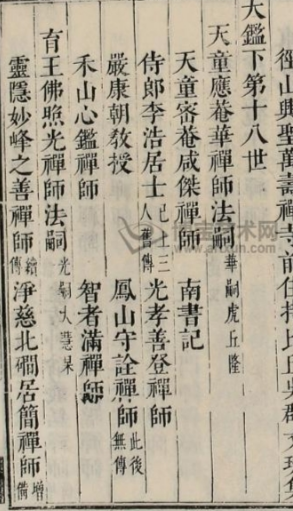 徑山興聖萬壽禪寺前住持比丘吳郡文琇集
大鑑下第十八世
天童應菴華禪師法嗣華嗣虎丘隆
天童密菴咸傑禪師 南書記
侍郎李浩居士已上三人舊傳 光孝善登禪師
嚴康朝教授 鳳山守詮禪師此後無傳
禾山心鑑禪師 智者滿禪師
育王佛照光禪師法嗣光嗣大慧杲
靈隱妙峰之善禪師續傳 淨慈北磵居簡禪師增備